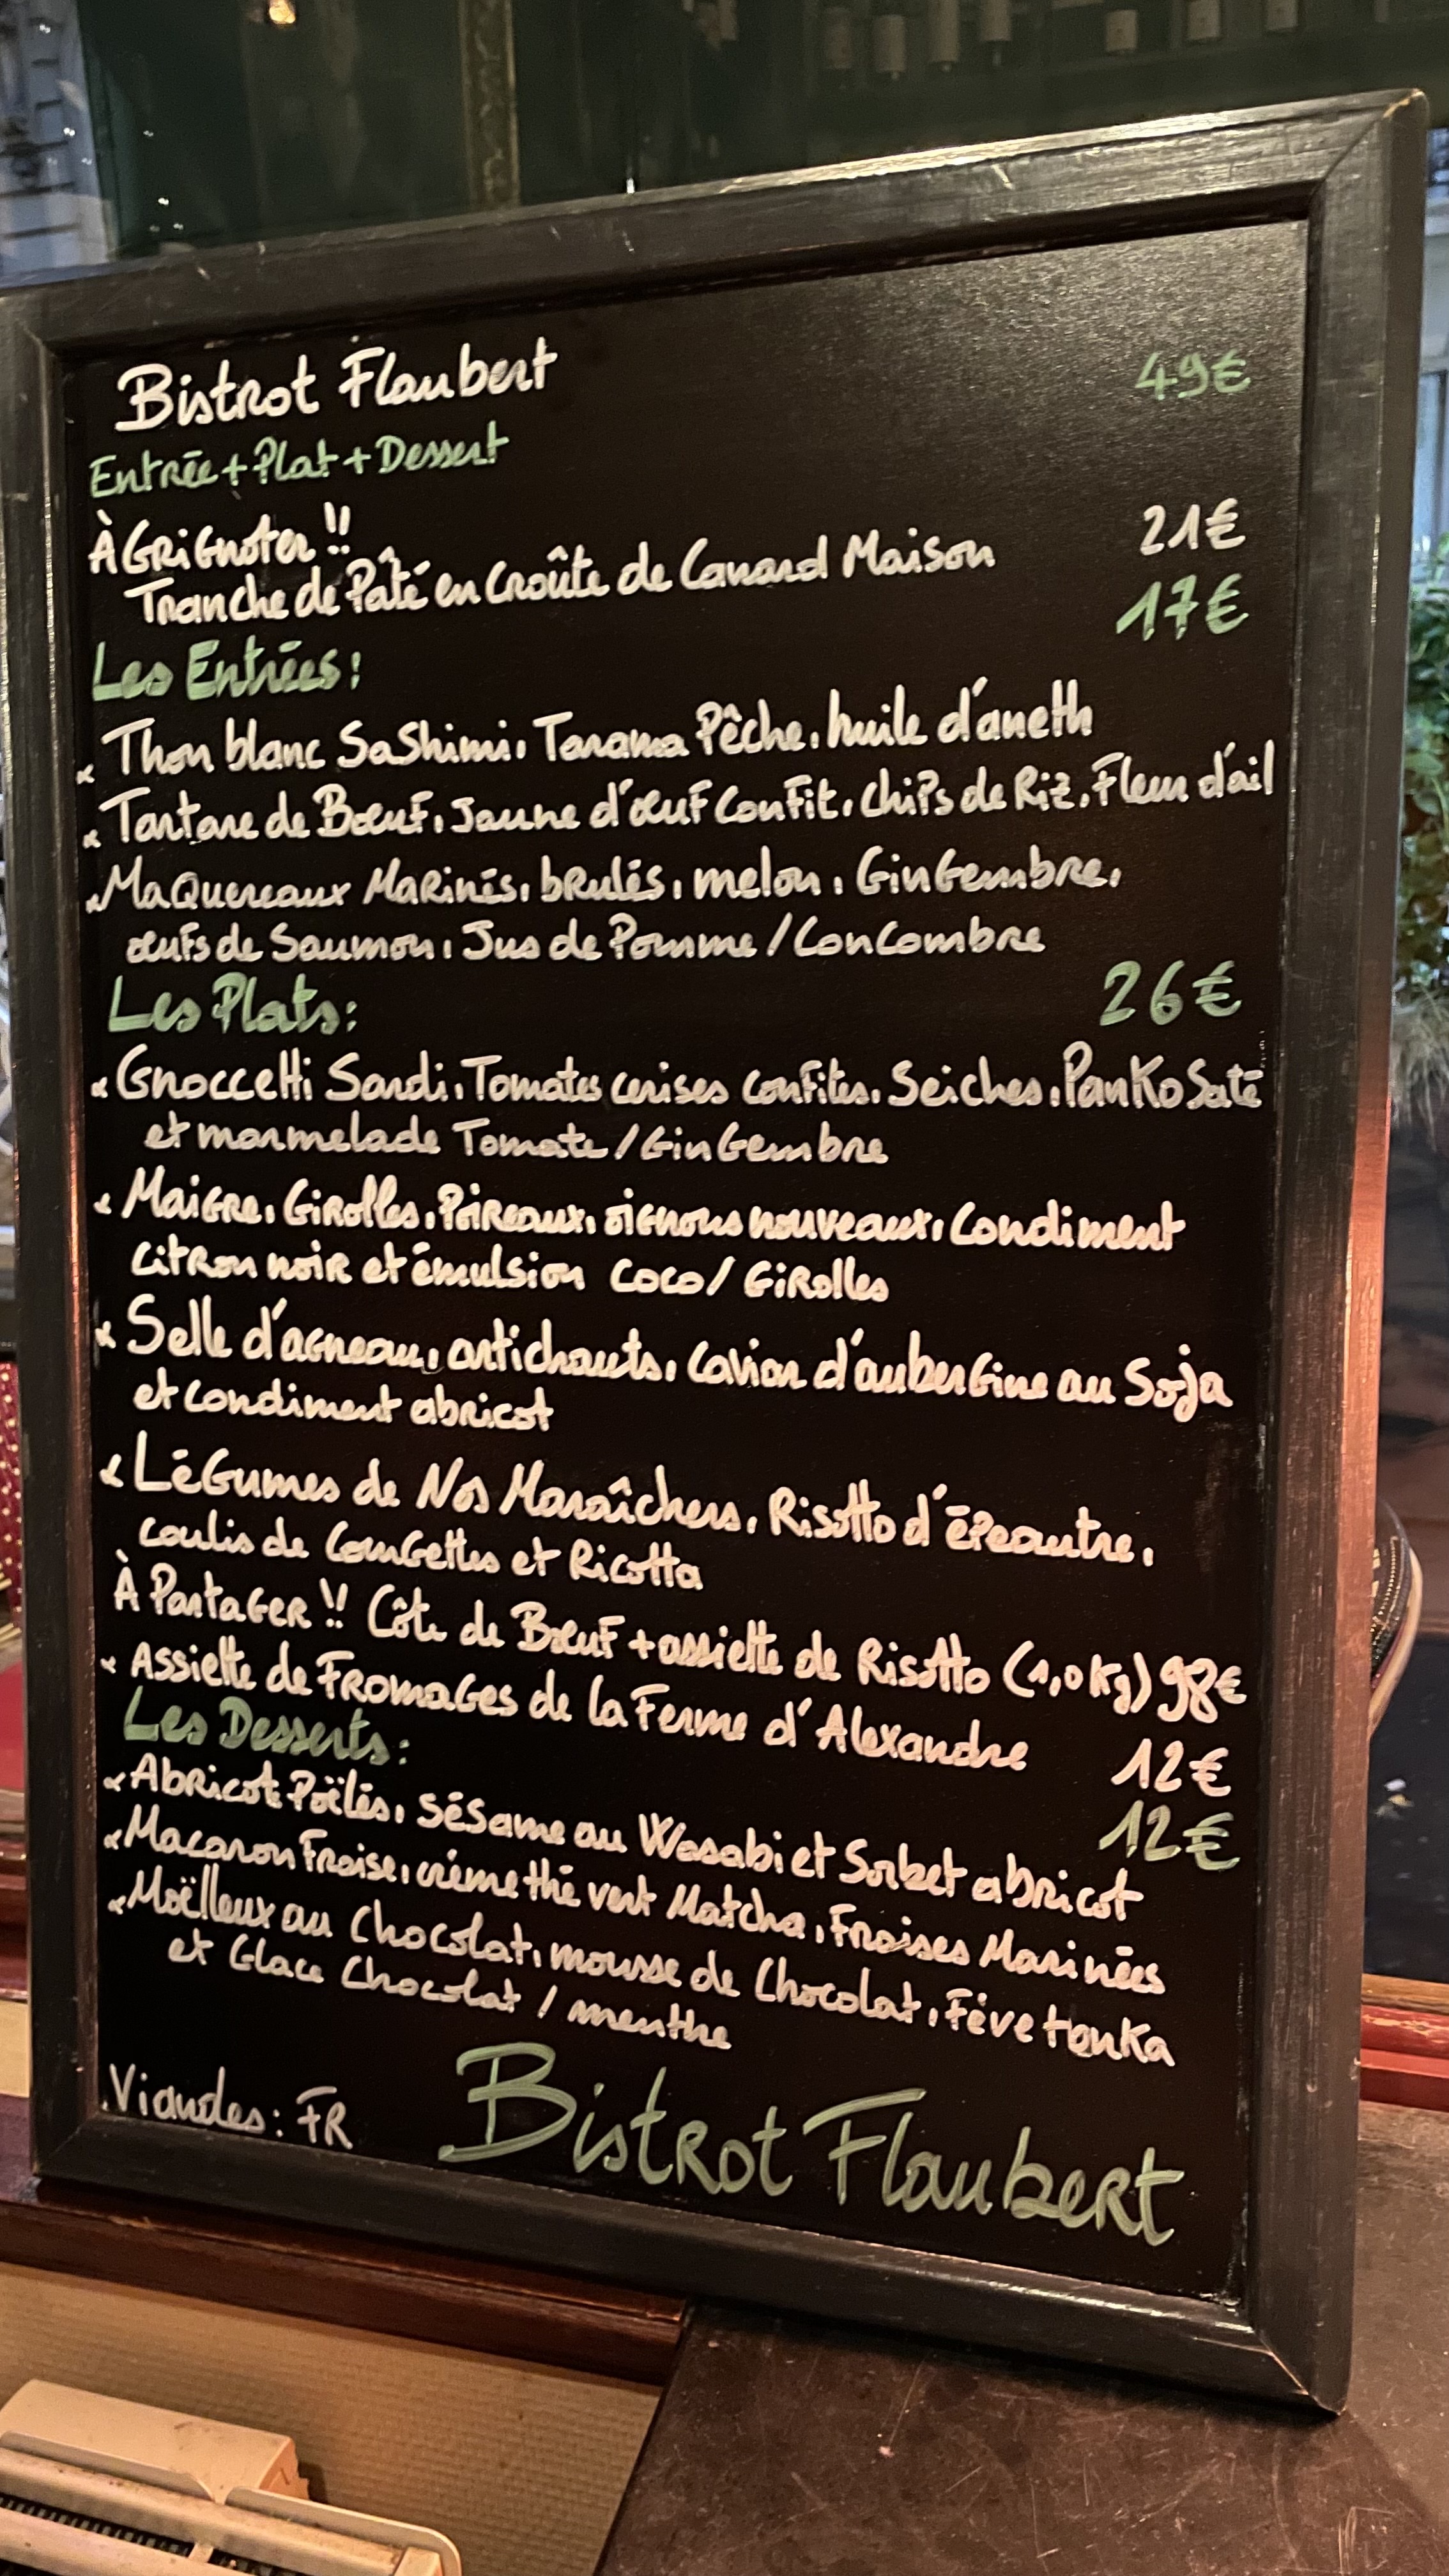 Bistrot Flaubert 49€
Entrée + Plat + Dessert
À Grignoter !! 21€
Tranche de Pâté en Croûte de Canard Maison
Les Entrées : 17€
Thon blanc Sashimi, Tarama Pêche, huile d'aneth
Tartare de Bœuf, Jaune d'œuf Confit, Chips de Riz, Fleur d'ail
Maquereaux Marinés, brulés, melon, Gingembre,
œufs de Saumon, Jus de Pomme / Concombre
Les Plats : 26€
Gnoccetti Sardi, Tomates cerises confites, Seiches, Panko Saté
et marmelade Tomate / Gingembre
Maigre, Girolles, Poireaux, oignons nouveaux, Condiment
citron noir et émulsion coco / Girolles
Selle d'agneau, artichauts, caviar d'aubergine au Soja
et condiment abricot
Légumes de Nos Maraîchers, Risotto d'épeautre,
coulis de Courgettes et Ricotta
À Partager !! Côte de Bœuf + assiette de Risotto (1,0 Kg) 98€
Assiette de Fromages de la Ferme d'Alexandre 12€
Les Desserts : 12€
Abricots Poëlés, sésame au Wasabi et Sorbet abricot
Macaron Fraise, crème thé vert Matcha, Fraises Marinées
Moëlleux au Chocolat, mousse de Chocolat, Fève tonka
et Glace Chocolat / menthe
Viandes : FR
Bistrot Flaubert